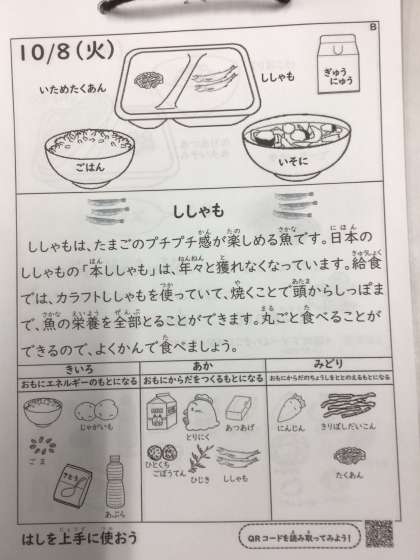 B
10/8(火)
いためたくあん
ししゃも
ぎゅう
にゅう
ごはん
いそに
ししゃも
ししゃもは、たまごのプチプチ感が楽しめる魚です。日本の
ししゃもの「本ししゃも」は、年々と獲れなくなっています。給食
では、カラフトししゃもを使っていて、焼くことで頭からしっぽま
で、魚の栄養を全部とることができます。丸ごと食べることが
できるので、よくかんで食べましょう。
きいろ
おもにエネルギーのもとになる
あか
おもにからだをつくるもとになる
みどり
おもにからだのちょうしをととのえるもとになる
じゃがいも
ごま
さとう
あぶら
とりにく
あつあげ
ひとくち
ごぼうてん
ひじき
ししゃも
にんじん
きりぼしだいこん
たくあん
はしを上手に使おう
QRコードを読み取ってみよう!